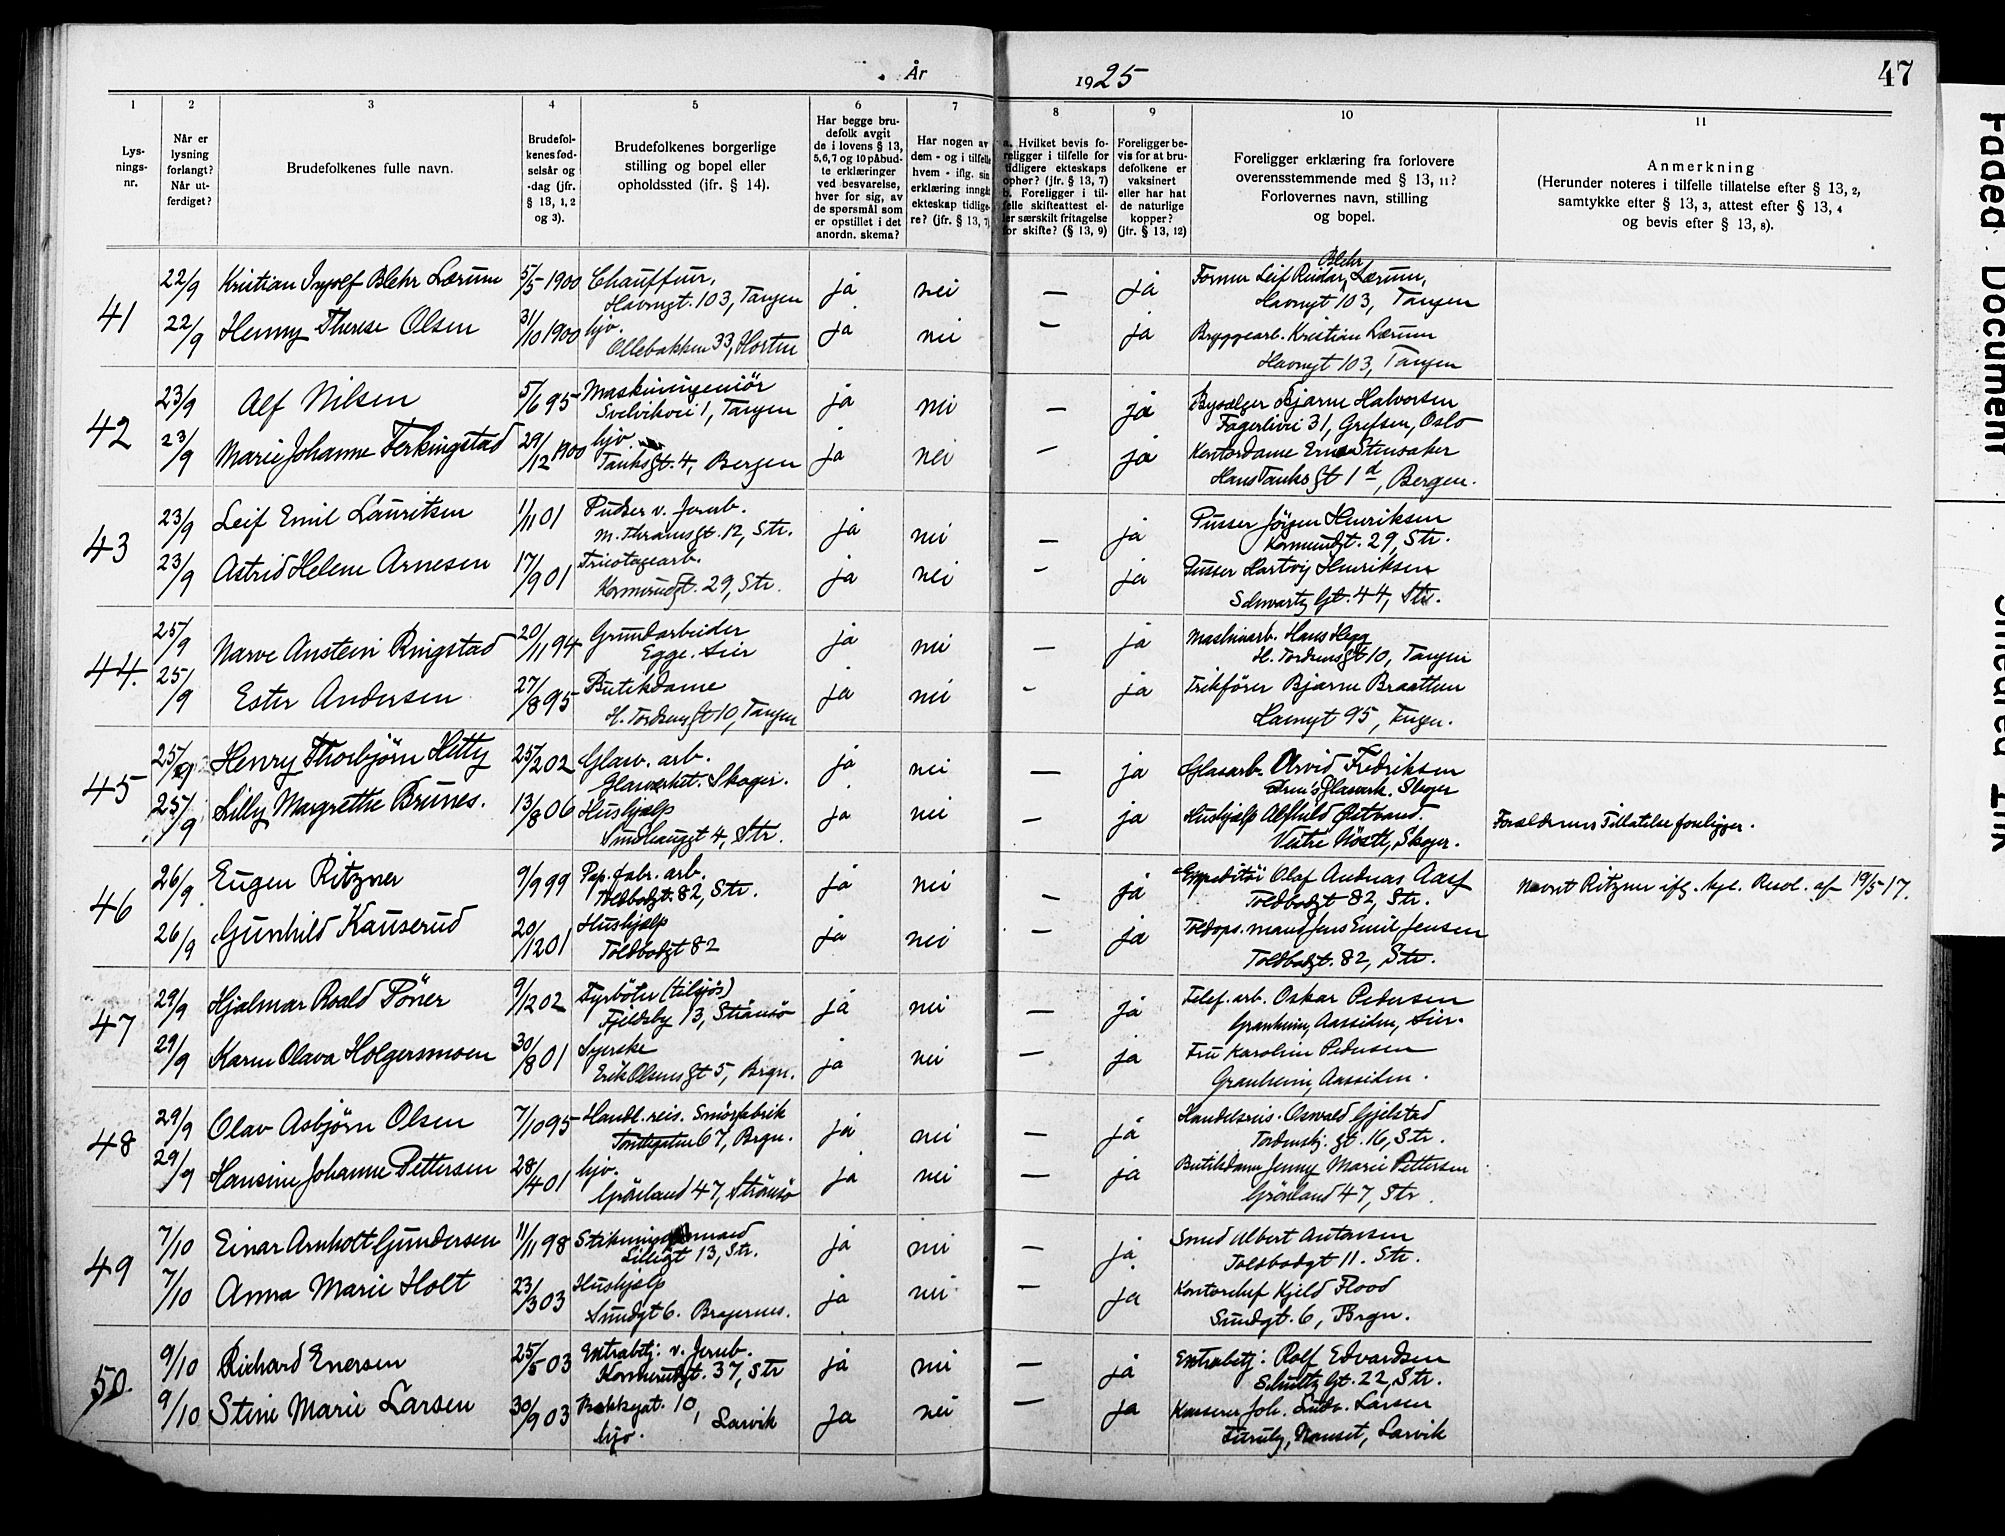 År
1925
47
1
2
3
4
5
6
7
8
9
10
11
Lys-
nings-
nr.
Når er
lysning
forlangt?
Når ut-
ferdiget?
Brudefolkenes fulle navn.
Brudefol-
kenes fød-
selsår og
-dag (jfr.
§ 13, 1, 2
og 3).
Brudefolkenes borgerlige
stilling og bopel eller
opholdssted (jfr. § 14).
Har begge bru-
defolk avgit
de i lovens § 13,
5,6,7 og 10 påbud-
te erklæringer
ved besvarelse,
hver for sig, av
de spørsmål som
er opstillet i det
anordn. skema?
Har nogen av
dem - og i tilfelle
hvem - iflg. sin
erklæring inngåt
ekteskap tidlige-
re? (jfr. § 13, 7)
a. Hvilket bevis fo-
religger i tilfelle for
tidligere ekteskaps
ophør? (jfr. § 13, 7)
b. Foreligger i til-
felle skifteattest el-
ler særskilt fritagelse
for skifte? (§ 13, 9)
Foreligger be-
vis for at bru-
defolkene er
vaksinert
eller har hat
de naturlige
kopper?
(jfr. § 13, 12)
Foreligger erklæring fra forlovere
overensstemmende med § 13, 11?
Forlovernes navn, stilling
og bopel.
Anmerkning
(Herunder noteres i tilfelle tillatelse efter § 13, 2,
samtykke efter § 13, 3, attest efter § 13, 4
og bevis efter § 13, 8).
41
22/9 Kristian Ingolf Blehr Lærum 5/5 1900 Chauffeur, ja nei — ja Former Leif Reidar Blehr Lærum,
Havnegt. 103, Tangen Havnegt 103, Tangen
22/9 Henny Therese Olsen 31/10 1900 hjv. ja nei — ja Bryggearb. Kristian Lærum
Ollebakken 33, Horten Havnegt 103, Tangen
42
23/9 Alf Nilsen 5/6 95 Maskiningeniör ja nei — ja Bysælger Bjarne Halvorsen
Svelvikvei 1, Tangen Fagerlivei 31, Grefsen, Oslo
23/9 Marie Johanne Ferkingstad 29/12 1900 hjv. ja nei — ja Kontordame Erna Stensaker
Tanksgt. 4, Bergen Hans Tanks gt 1d, Bergen.
43
23/9 Leif Emil Lauritsen 1/11 01 Pudser v. Jernb. ja nei — ja Pusser Jörgen Henriksen
M. Thranesgt. 12, Str. Kornerudgt. 29, Str.
23/9 Astrid Helene Arnesen 17/9 01 Tricotagearb. ja nei — ja Pusser Hartvig Henriksen
Kornerudgt. 29, Str. Schwartz Gt. 44, Str.
44.
25/9 Narve Anstein Ringstad 20/11 94 Grundarbeider ja nei — ja Maskinarb. Hans Hegg
Egge. Lier H. Tordsensgt 10, Tangen
25/9 Ester Andersen 27/8 95 Butikdame ja nei — ja Trikförer Bjarne Braathen
H. Tordsensgt 10, Tangen Havnegt 95, Tngn.
45
25/9 Henry Thorbjörn Hitty 25/2 02 Glasv. arb. ja nei — ja Glasarb. Arvid Fredriksen
Glasverket. Skoger. Drm's Glasverk. Skoger
25/9 Lilly Margrethe Brunes. 13/8 06 Hushjælp ja nei — ja Hushjælp Alfhild Östrand.
Sundhauggt 4, Str. Vestre Nöste, Skoger.
Forældrenes Tillatelse foreligger.
46
26/9 Eugen Ritzner 9/9 99 Pap. fabr. arb. ja nei — ja Expeditör Olaf Andreas Aas
Toldbodgt. 82, Str. Toldbodgt 82, Str.
Navnet Ritzner ifg. kgl. Resol. af 19/5 17.
26/9 Gunhild Kauserud 20/12 01 Hushjælp ja nei — ja Toldops. mand Jens Emil Jensen
Toldbodgt 82 Toldbodgt. 82, Str.
47
29/9 Hjalmar Roald Pöner 9/12 02 Fyrböter (tilsjös) ja nei — ja Telef. arb. Oskar Pedersen
Fjeldsby 13, Strömsö Granheim, Aassiden, Lier.
29/9 Karen Olava Holgersmoen 30/8 01 Syerske ja nei — ja Fru Karoline Pedersen
Erik Olsens gt 5, Brgn. Granheim, Aassiden.
48
29/9 Olav Asbjörn Olsen 7/10 95 Handl. reis. Smörfabrik ja nei — ja Handelsreis. Oswald Gjelstad
Tomtegaten 67, Brgn. Tordenskj. gt. 16, Str.
29/9 Hansine Johanne Pettersen 28/4 01 hjv. ja nei — ja Butikdame Jenny Marie Pettersen
Grönland 47, Strömsö Grönland 47, Str.
49
7/10 Einar Arnholt Gundersen 11/11 98 ja nei — ja Smed Albert Antonsen
Lilligt 13, Str. Toldbodgt 11. Str.
7/10 Anna Marie Holt 23/3 03 Hushjælp ja nei — ja Kontorchef Kjeld Flood
Sundgt 6. Bragernes. Sundgt. 6, Brgn.
50.
9/10 Richard Enersen 25/5 03 Extrabetj. v. Jernb. ja nei — ja Extrabetj. Rolf Edvardsen
Kornerudgt. 37, Str Schultz Gt. 22, Str.
9/10 Stine Marie Larsen 30/9 03 Bakkegt. 10, Larvik ja nei — ja Kasserer Joh. Ludv. Larsen
hjv. Furuly, Nanset, Larvik
Faded Document
Smeared Ink